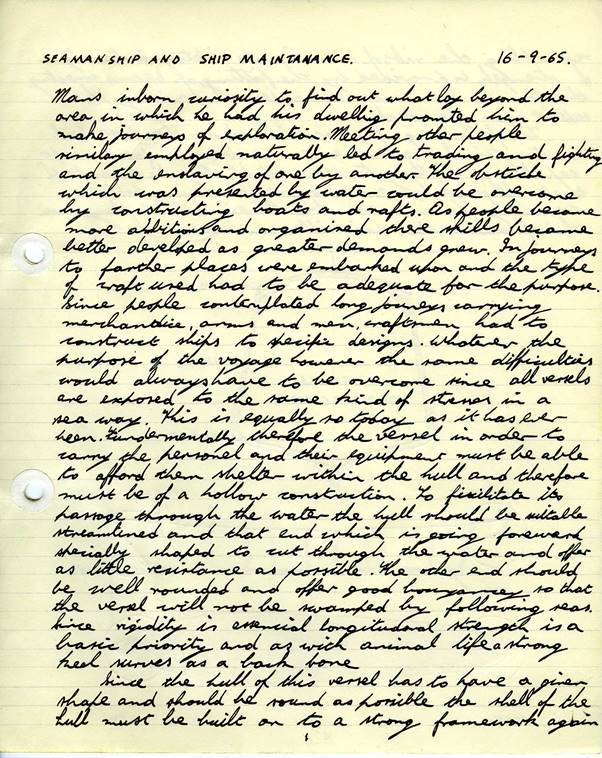 SEAMANSHIP AND SHIP MAINTANANCE. 16-9-65.
Mans inborn curiosity to find out what lay beyond the
area in which he had his dwellig promted him to
make journeys of exploration. Meeting other people
similary employed naturally led to trading and fighting
and the enslaving of one by another. The obsticle
which was presented by water could be overcome
by constructing boats and rafts. As people became
more and organised there skills became
better develped as greater demands grew. In journeys
to farther places were embarked upon and the type
of craft used had to be adequate for the purpose.
Since people contemplated long journeys carrying
merchandise, arms and men, craftsmen had to
construct ships to specific designs. Whatever the
purpose of the voyage however the same difficulties
would always have to be overcome since all vessels
are exposed to the same kind of stresses in a
sea way. This is equally so today as it has ever
been. Fundermentally therefore the vessel in order to
carry the personel and their equipment must be able
to afford them shelter within the hull and therefore
must be of a hollow construction. To its
passage through the water the hull should be suitable
streamlined and that end which is going foreward
specially shaped to cut through the water and offer
as little resistance as possible. The other end should
be well rounded and offer good so that
the vessel will not be swamped by following seas.
Since rigidity is essencial longitudonal strength is a
basic priority and as with animal life a strong
keel surves as a back bone
Since the hull of this vessel has to have a given
shape and should be round as possible the shell of the
hull must be built on to a strong framework again